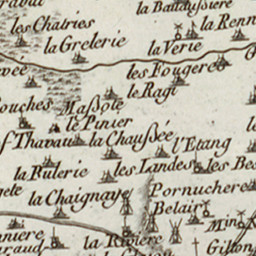 la Baudussiere
les Chatries
la Renn
la Grelerie
la Verie
les Fougere
le Ragi
ouches
Massole
le Pinier
f Thavau
la Chaussée
l'Etang
la Rulerie
les Landes
les Be
gete
la Chaignaye
Pornuchere
Belair
Min
niere
la Riviere
Gillon
raud